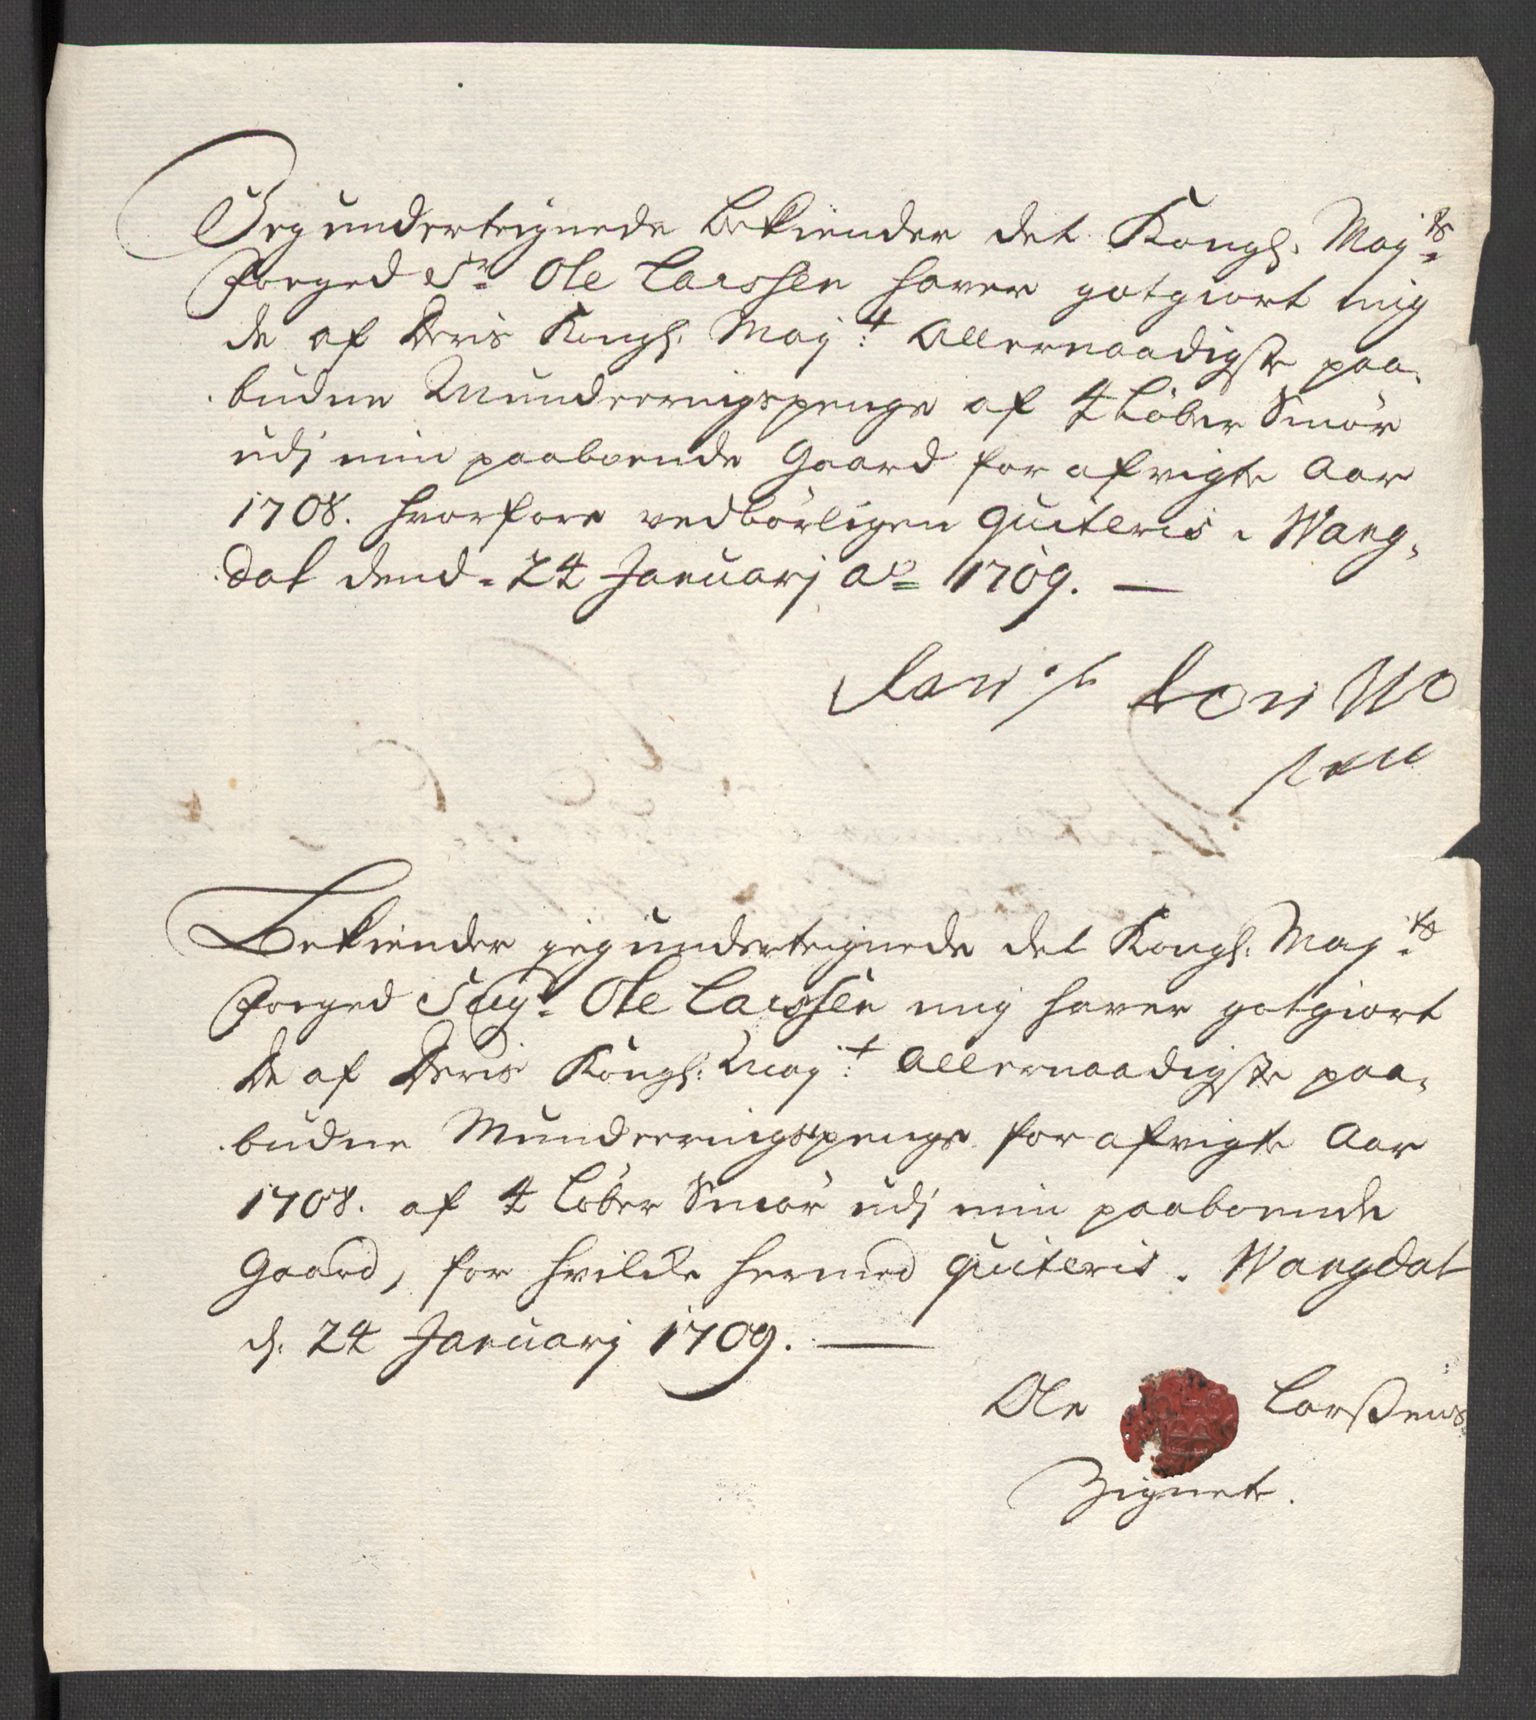 Jeg underteignede bekiender det Kongl. Maj.ts
Foeged Sr. Ole Larssen hafver gotgiort mig
de af Deris Kongl. Maj.t Allernaadigste paa-
budne Munderingspenge af 4 Løber Smør
udj min paaboende Gaard for afvigte Aar
1708. hvorfore vedbørligen quiteris, Wang-
dal dend. 24 Januarj Ao 1709. —
Bekiender jeg underteignede det Kongl. Maj.ts
Foeged Seigr. Ole Larssen mig hafver gotgiort
De af Deris Kongl. Maj.t Allernaadigste paa-
budne Munderingspenge for afvigte Aar
1708. af 4 Løber Smør udj min paaboende
Gaard, for hvilke hermed quiteris. Wangdal
d. 24 Januarj 1709. —
Ole Larssens
Zignete.